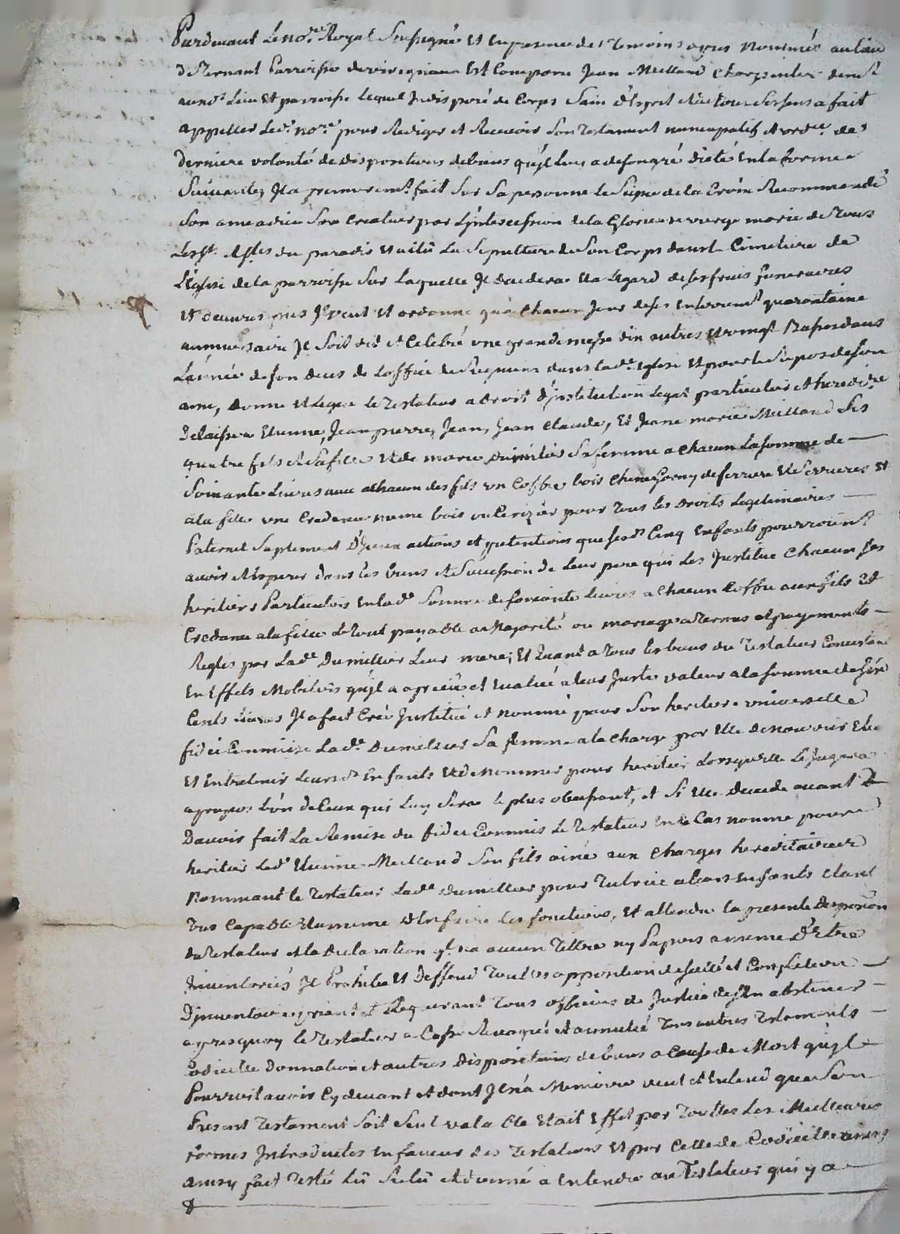 Pardevant le no.re Royal Soussigné et en presence des temoins apres nommés au lieu
parroisse de virignieu Est comparu Jean Milliand charpentier dem.t
aud. Lieu et parroisse lequel Indisposé de Corps Sain d'Esprit et de tous ses sens a fait
appeller led. no.re pour Rediger et Recevoir Son Testament nuncupatif et ord.ce de
Derniere volonté de dispositions de biens qu'il luy a de son gré dicté En la forme
Suivante, Il a premierem.t fait Sur Sa personne le Signe de la Croix Recommandé
Son ame a dieu Son Createur par l'intercession de la Glorieuse vierge marie de Tous
Les S.ts du paradis et esleu La Sepulture de Son Corps dans le Cimetiere de
l'Eglise de la parroisse Sur laquelle Il decedera Et a l'Egard de ses frais funeraires
et oeuvres pies Il veut et ordonne qu'a chacun Jour de ses Enterrem.t quarantaine
anniversaire Il Soit dit et Celebré une grande messe dix autres et vingt Basses dans
L'année de son deces de l'office dans lad. Eglise Et pour le Repos de son
ame, donne et Legue le Testateur a droit d'institution Legat particulier et hereditaire
Delaisse a Etienne, Jean pierre, Jean, Jean Claude, Et Jeane marie Milliand Ses
quatre fils et Sa fille et de marie Dumillier Sa femme a chacun la somme de
Soixante Livres avec a chacun des fils un Coffre bois chene garny de ferrure et Serrures et
a la fille une Credence meme bois ou Cerizier pour Tous les Droits Legitimaires
Paternel Suplement D'yceux actions et pretentions que lesd. Cinq Enfants pourroient
avoir et esperer dans les biens et Succession de Leur pere qui Les Institue Chacun Ses
heritiers Particuliers en lad. Somme de soixante livres a chacun Coffre aux fils et
Credence a la fille Le tout payable a Majorité ou mariage a Termes et payements
Reglés par Lad. Dumillier Leur mere; Et Quant a Tous les biens du Testateur Consistant
En Effets Mobiliers qu'il a aprecié et Evalué a leur Juste valeur a la somme de
Cents livres Il a fait Créé Institué et nommé pour Son heritiere universelle
fidei Commise Lad. Dumillier Sa femme a la Charge par Elle de nourrir Elever
et Entretenir Leursd. Enfants et de nommer pour heritier Lorsquelle le Jugera
apropos L'un de Ceux qui Luy Sera le plus obeissant, et Si Elle Decede avant
Davoir fait La Remise du fidei Commis Le Testateur En ce Cas nomme pour
heritier Led. Etienne Milliand Son fils ainé aux Charges hereditaires
Nommant le Testateur Lad. Dumillier pour Tutrice a leurs Enfants Etant
Tres Capable et d'En faire les fonctions, Et attendu la presente Disposition
du Testateur et la declaration qu'il n'a aucun Tiltre ny Papiers D'Etre
Inventoriés Il Prohibe et Deffend Toutes apposition de scellé et Confection
D'inventaire priant et Requerant Tous officiers de Justice de s'En abstenir
apresquoy le Testateur a Cassé Revoqué et annullé Tous autres Testaments
Codicille Donnation et autres Dispositions de biens a Cause de Mort qu'il
Pourroit avoir Cy devant et dont Il n'a Memoire veut et Entend que Son
Present Testament Soit Seul valable Et ait Effet par Touttes Les Meilleures
formes Introduites En faveur des Testateurs Et par Celle de Codicille
ainsy fait Testé lû Relû et donné a Entendre au Testateur qui y a